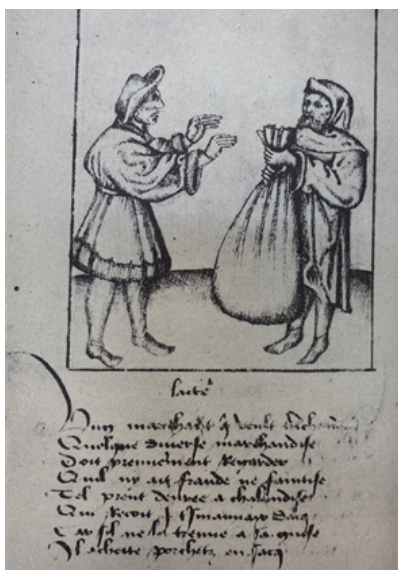 Ung marchant q̃ veult
Quelque diverse marchandise
Doit Regarder
Quil ny ait fraude ne faintise
Tel prent denree a chalandise
Qui Recoit
Car sil ne la treuve a sa guise
Il achette porchetz en sacq